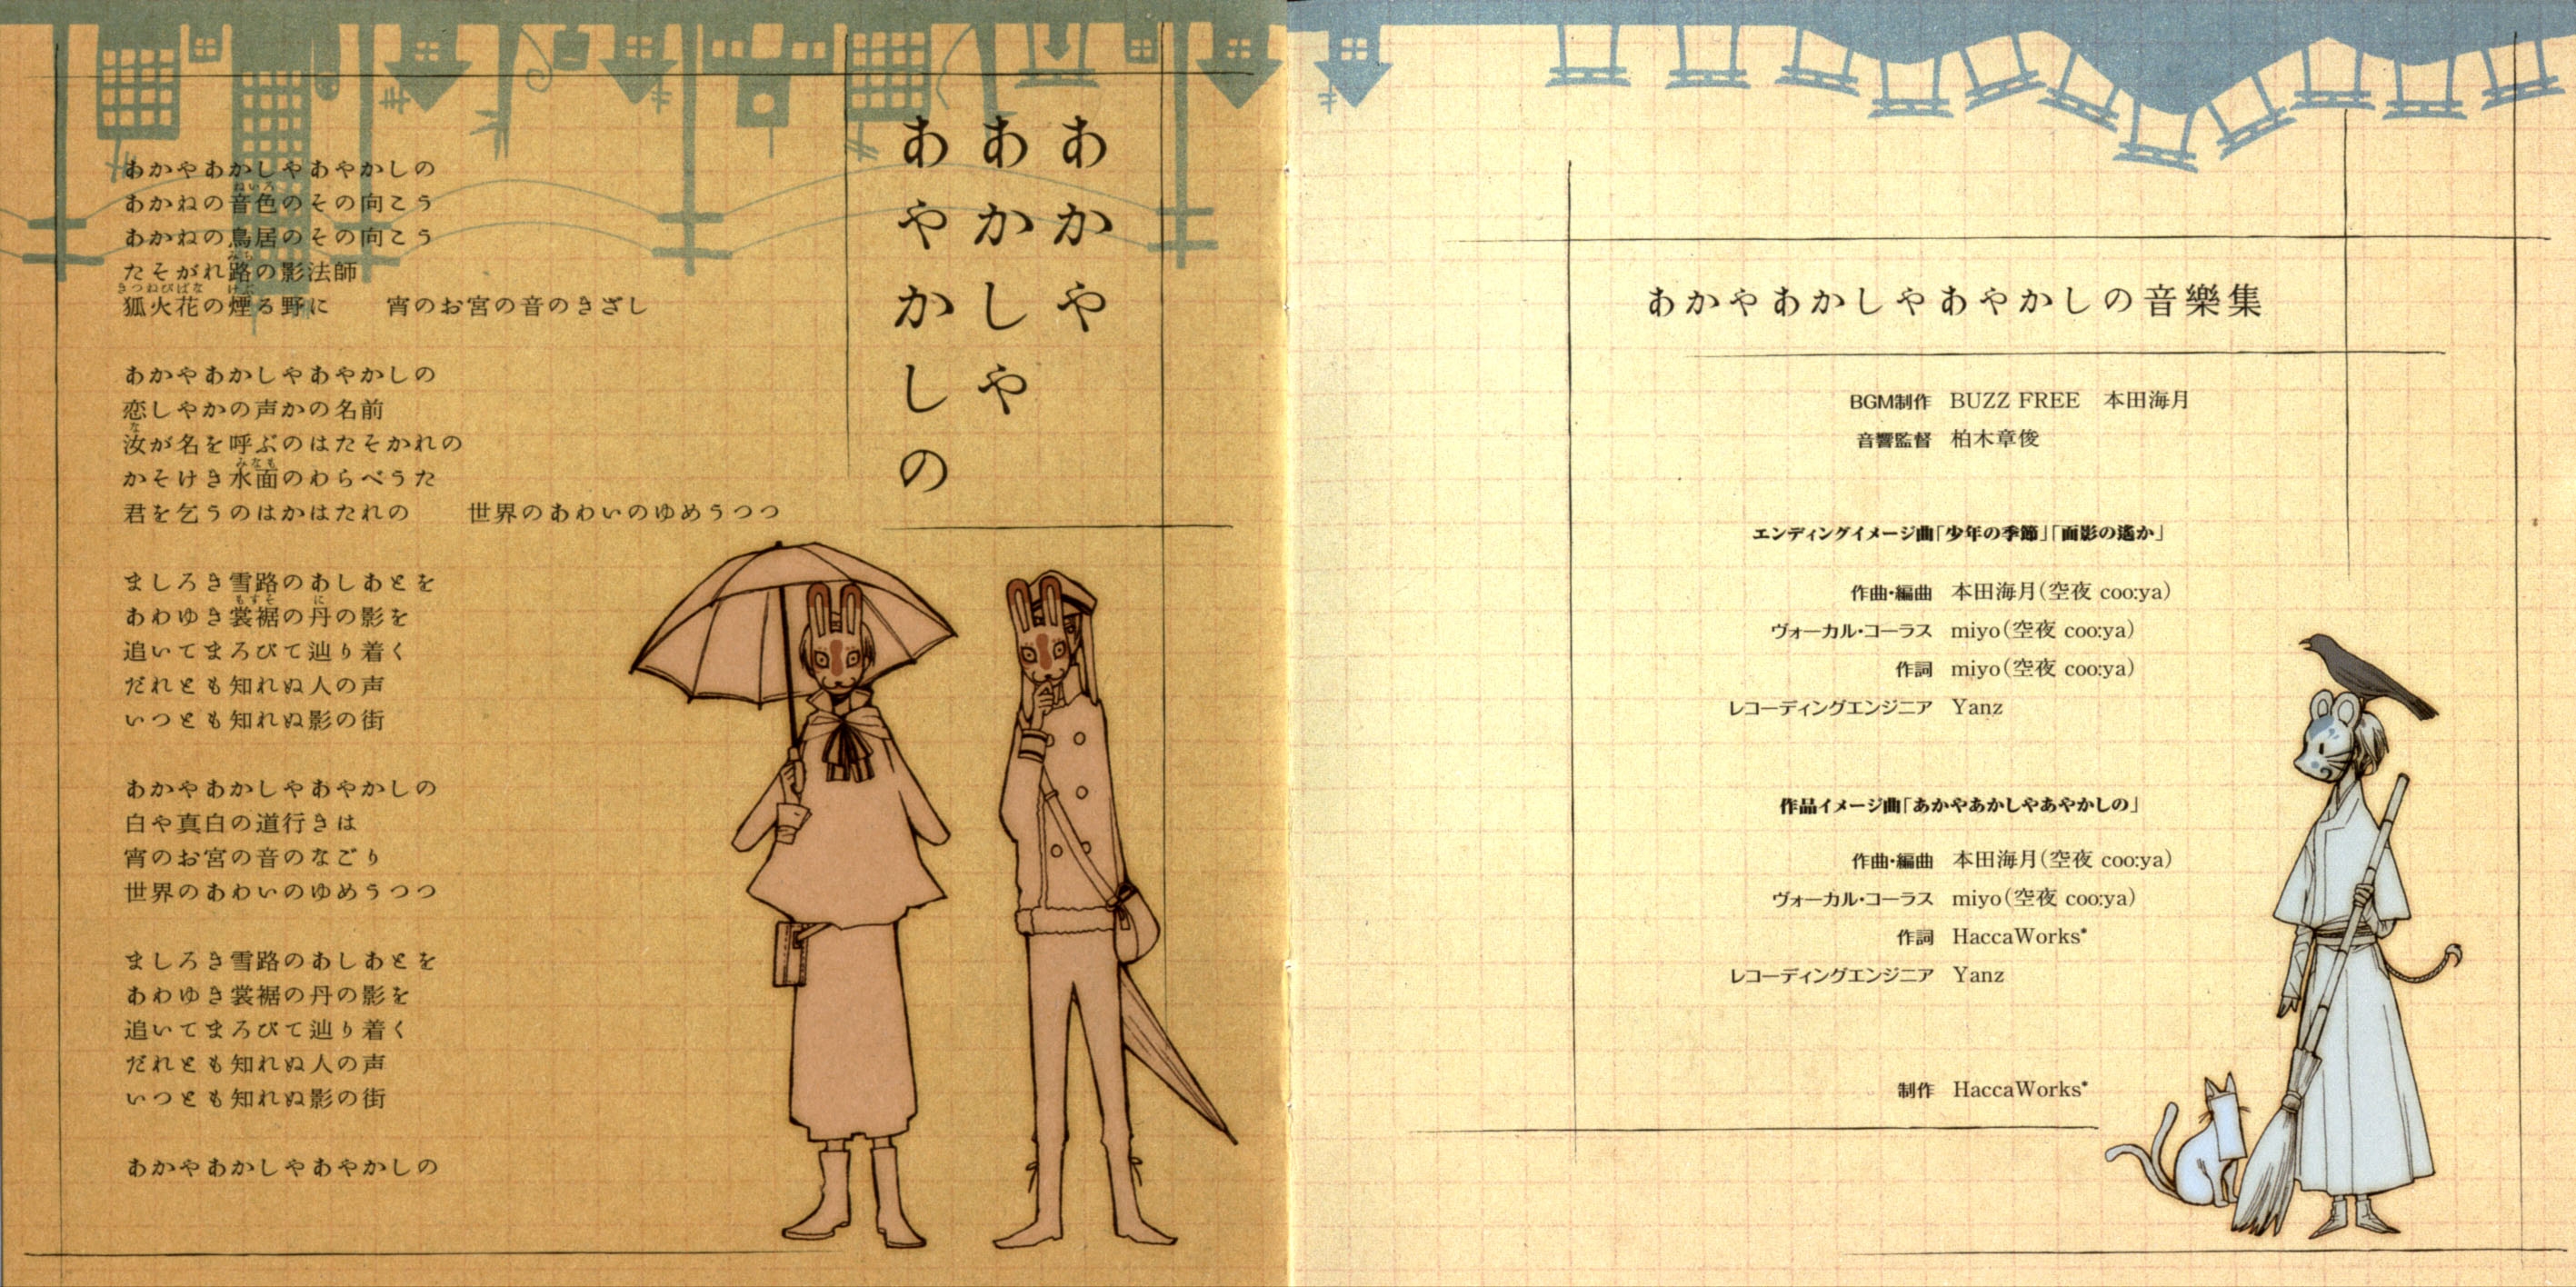 あかや
あかしや
あやかしの
あかやあかしやあやかしの
ねいろ
あかねの音色のその向こう
あかねの鳥居のその向こう
みち
たそがれ路の影法師
きつねびばな けぶ
狐火花の煙る野に　宵のお宮の音のきざし
あかやあかしやあやかしの
恋しやかの声かの名前
な
汝が名を呼ぶのはたそかれの
みなも
かそけき水面のわらべうた
君を乞うのはかはたれの　世界のあわいのゆめうつつ
ましろき雪路のあしあとを
もすそ に
あわゆき裳裾の丹の影を
追いてまろびて辿り着く
だれとも知れぬ人の声
いつとも知れぬ影の街
あかやあかしやあやかしの
白や真白の道行きは
宵のお宮の音のなごり
世界のあわいのゆめうつつ
ましろき雪路のあしあとを
あわゆき裳裾の丹の影を
追いてまろびて辿り着く
だれとも知れぬ人の声
いつとも知れぬ影の街
あかやあかしやあやかしの
あかやあかしやあやかしの音樂集
BGM制作 BUZZ FREE 本田海月
音響監督 柏木章俊
エンディングイメージ曲「少年の季節」「面影の遙か」
作曲・編曲 本田海月(空夜 coo:ya)
ヴォーカル・コーラス miyo(空夜 coo:ya)
作詞 miyo(空夜 coo:ya)
レコーディングエンジニア Yanz
作品イメージ曲「あかやあかしやあやかしの」
作曲・編曲 本田海月(空夜 coo:ya)
ヴォーカル・コーラス miyo(空夜 coo:ya)
作詞 HaccaWorks*
レコーディングエンジニア Yanz
制作 HaccaWorks*